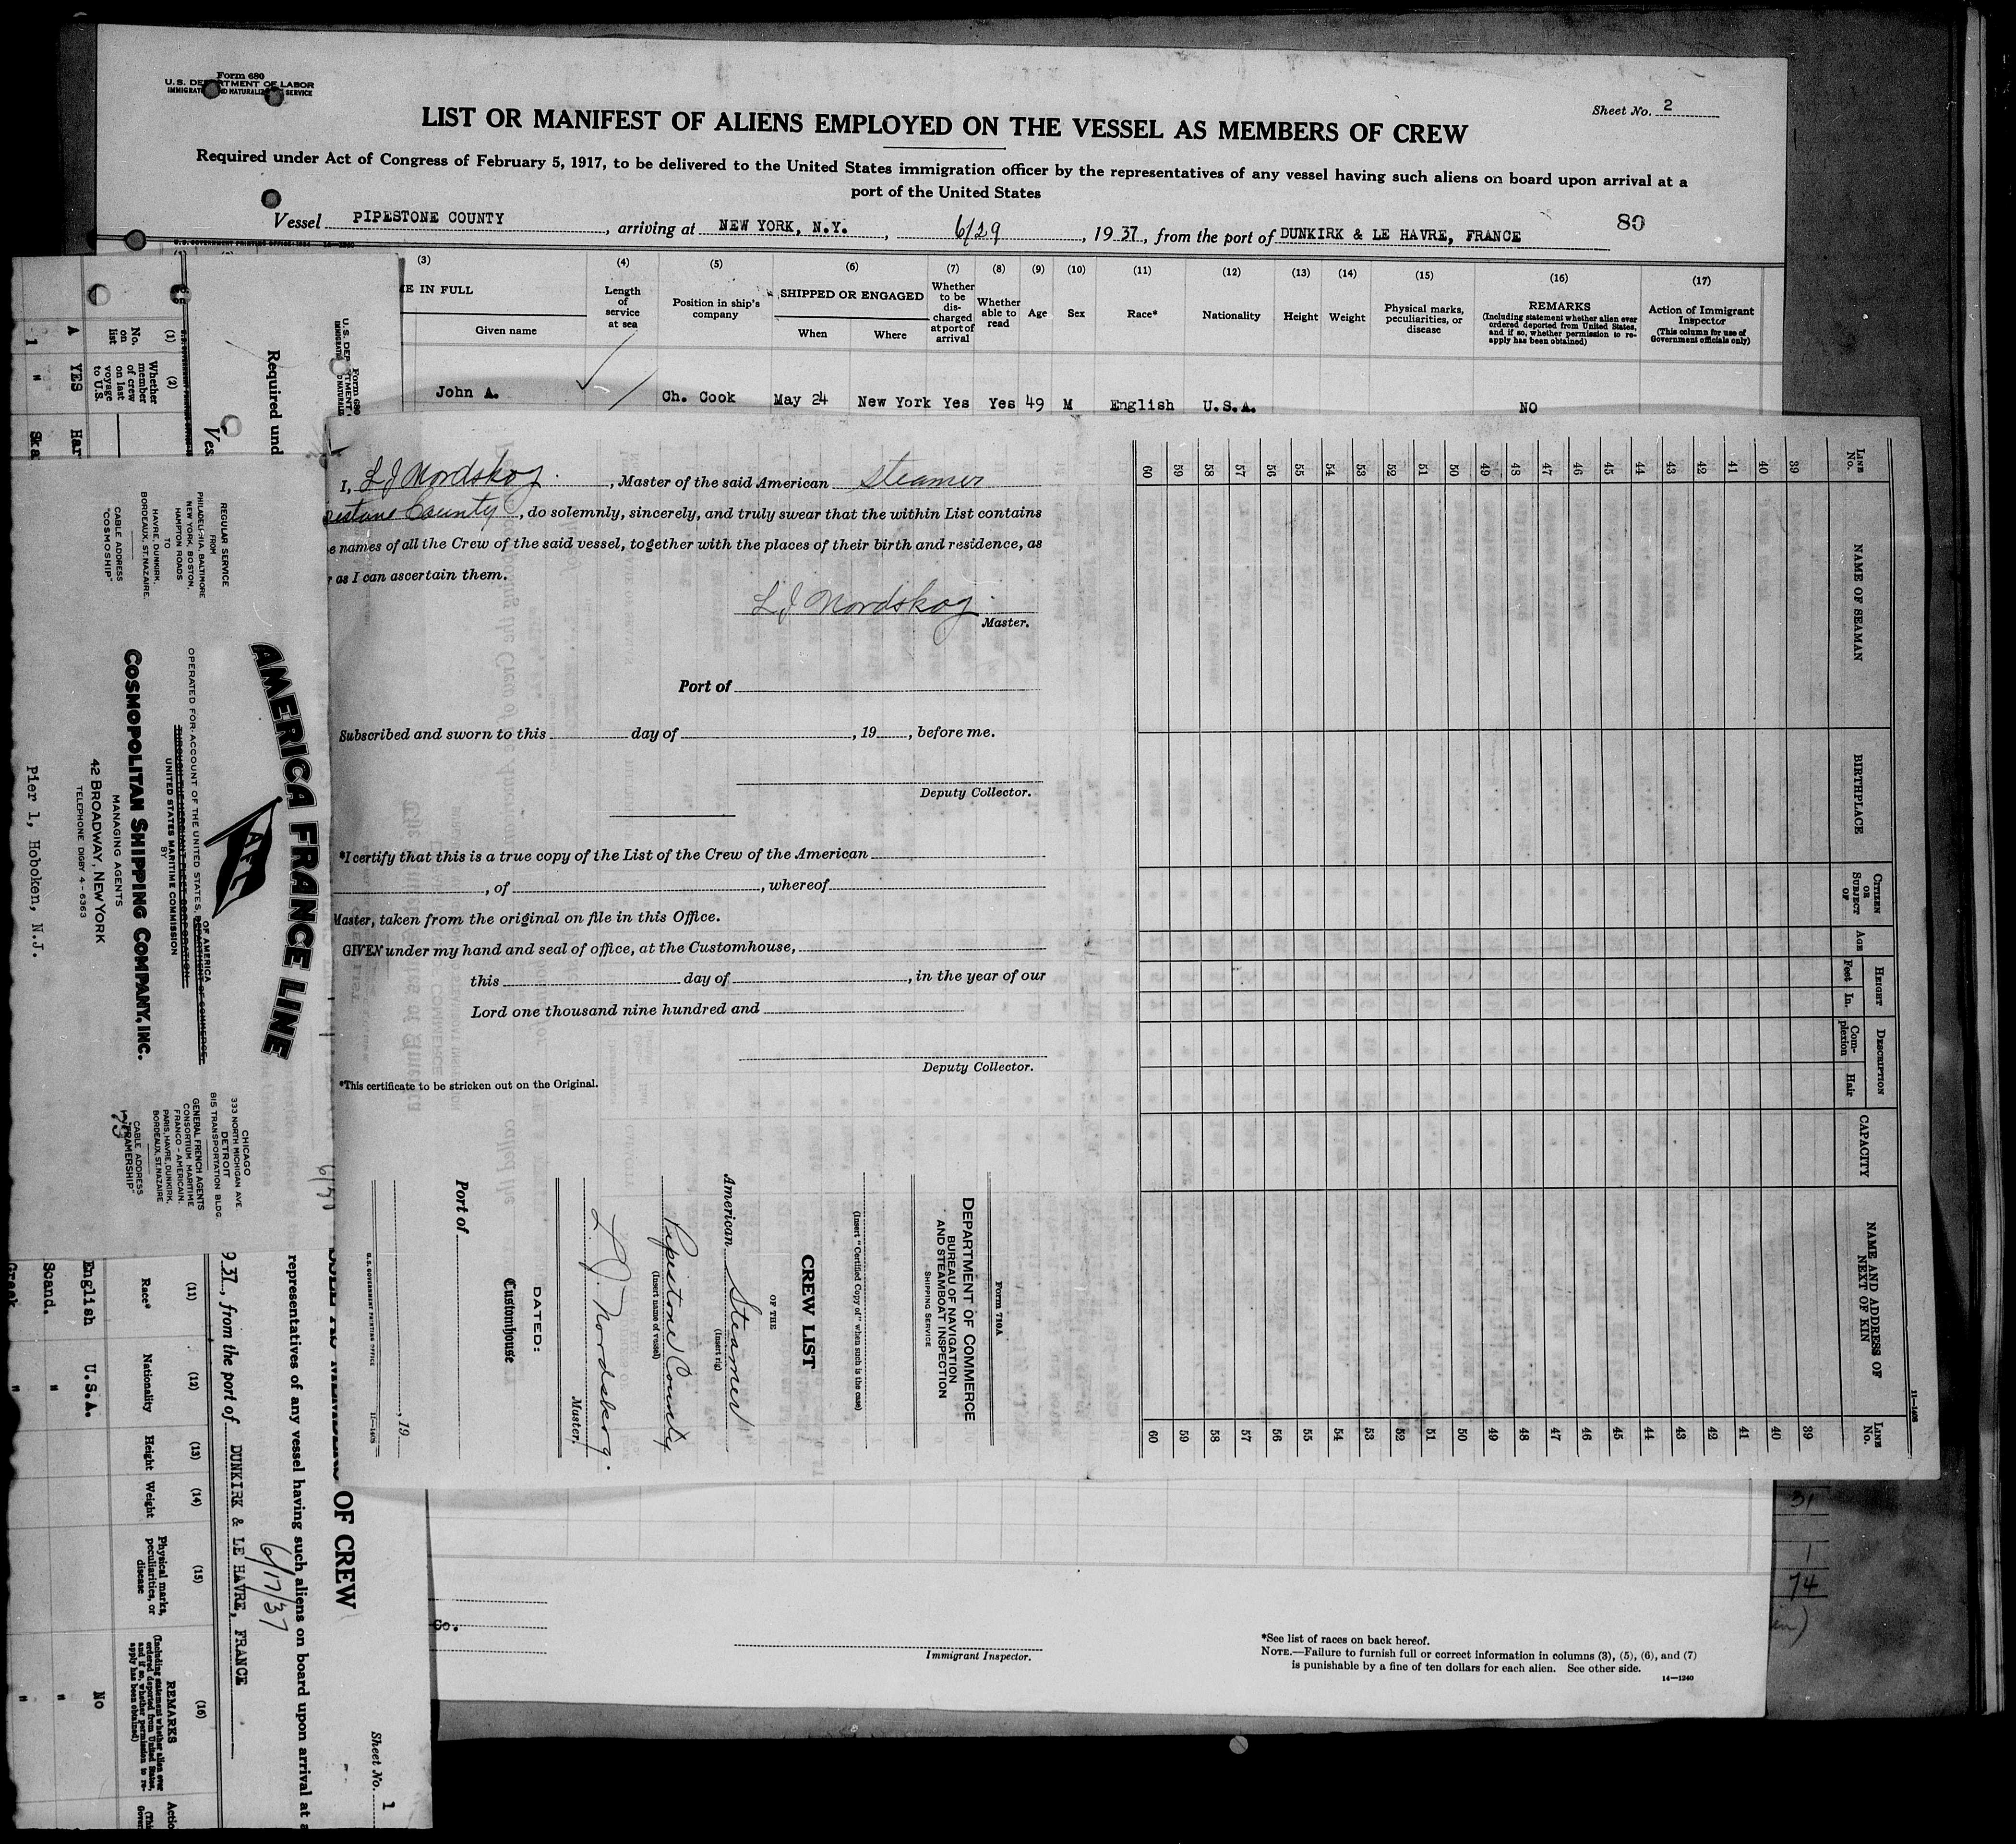 Form 680
U. S. DEPARTMENT OF LABOR
IMMIGRATION AND NATURALIZATION SERVICE
Sheet No. 2
LIST OR MANIFEST OF ALIENS EMPLOYED ON THE VESSEL AS MEMBERS OF CREW
Required under Act of Congress of February 5, 1917, to be delivered to the United States immigration officer by the representatives of any vessel having such aliens on board upon arrival at a
port of the United States
Vessel PIPESTONE COUNTY, arriving at NEW YORK, N.Y., 6/29, 1937, from the port of DUNKIRK & LE HAVRE, FRANCE
80
(3) (4) (5) (6) (7) (8) (9) (10) (11) (12) (13) (14) (15) (16) (17)
E IN FULL
Given name
Length of service at sea
Position in ship's company
SHIPPED OR ENGAGED
When Where
Whether to be discharged at port of arrival
Whether able to read
Age
Sex
Race*
Nationality
Height
Weight
Physical marks, peculiarities, or disease
REMARKS
(Including statement whether alien ever ordered deported from United States, and if so, whether permission to re-apply has been obtained)
Action of Immigrant Inspector
(This column for use of Government officials only)
John A. Ch. Cook May 24 New York Yes Yes 49 M English U.S.A. NO
I, L J Nordskog, Master of the said American Steamer
pestone County, do solemnly, sincerely, and truly swear that the within List contains
e names of all the Crew of the said vessel, together with the places of their birth and residence, as
r as I can ascertain them.
L J Nordskog
Master.
Port of
Subscribed and sworn to this day of , 19 , before me.
Deputy Collector.
*I certify that this is a true copy of the List of the Crew of the American
, of , whereof
Master, taken from the original on file in this Office.
GIVEN under my hand and seal of office, at the Customhouse,
this day of , in the year of our
Lord one thousand nine hundred and
Deputy Collector.
*This certificate to be stricken out on the Original.
Form 710A
DEPARTMENT OF COMMERCE
BUREAU OF NAVIGATION
AND STEAMBOAT INSPECTION
SHIPPING SERVICE
(Insert "Certified Copy of" when such is the case)
CREW LIST
OF THE
American Steamer
(Insert rig)
Pipestone County
(Insert name of vessel)
L. J. Nordskog.
Master.
DATED:
Customhouse
Port of
, 19
U.S. GOVERNMENT PRINTING OFFICE 11—1408
11—1408
LINE No.
NAME OF SEAMAN
BIRTHPLACE
CITIZEN OR SUBJECT OF
AGE
HEIGHT
Feet In.
DESCRIPTION
Complexion Hair
CAPACITY
NAME AND ADDRESS OF NEXT OF KIN
LINE No.
39 39
40 40
41 41
42 42
43 43
44 44
45 45
46 46
47 47
48 48
49 49
50 50
51 51
52 52
53 53
54 54
55 55
56 56
57 57
58 58
59 59
60 60
AMERICA FRANCE LINE
AFL
OPERATED FOR ACCOUNT OF THE UNITED STATES OF AMERICA
DEPARTMENT OF COMMERCE
THROUGH THE MERCHANT FLEET CORPORATION
BY
UNITED STATES MARITIME COMMISSION
COSMOPOLITAN SHIPPING COMPANY, INC.
MANAGING AGENTS
42 BROADWAY, NEW YORK
TELEPHONE DIGBY 4-6363
REGULAR SERVICE
FROM
PHILADELPHIA, BALTIMORE
NEW YORK, BOSTON,
HAMPTON ROADS
TO
HAVRE, DUNKIRK,
BORDEAUX, ST. NAZAIRE.
CABLE ADDRESS
"COSMOSHIP"
CHICAGO
333 NORTH MICHIGAN AVE.
DETROIT
BIS TRANSPORTATION BLDG.
GENERAL FRENCH AGENTS
CONSORTIUM MARITIME
FRANCO - AMERICAIN.
PARIS, HAVRE, DUNKIRK,
BORDEAUX, ST. NAZAIRE
CABLE ADDRESS
"FRAMERSHIP"
75
Pier 1, Hoboken, N.J.
Form 680
U. S. DEP TMENT
Required und
Ves
(1) (2)
No. on list
Whether member of crew on last voyage to U.S.
A YES Har
1 " Ska
Sheet No. 1
MEMBERS OF CREW
representatives of any vessel having such aliens on board upon arrival at a
6/17/37
9 37, from the port of DUNKIRK & LE HAVRE, FRANCE
(11) (12) (13) (14) (15) (16)
Race* Nationality Height Weight
Physical marks, peculiarities, or disease
REMARKS
(Including statement whether alien ever ordered deported from United States, and if so, whether permission to re-apply has been obtained)
Actio
English U.S.A. No
Scand. " "
Greek " "
Co.
Immigrant Inspector.
*See list of races on back hereof.
NOTE.—Failure to furnish full or correct information in columns (3), (5), (6), and (7)
is punishable by a fine of ten dollars for each alien. See other side.
14—1240
31
1
74